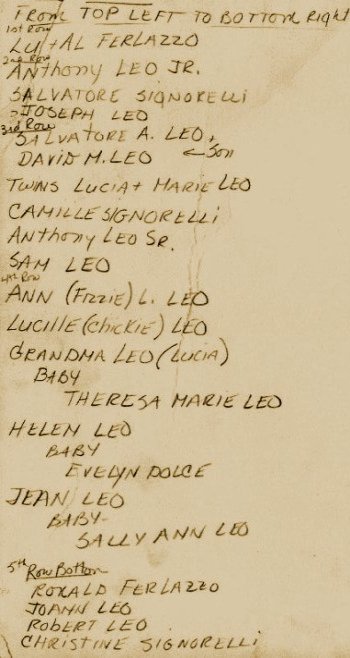 From TOP LEFT TO BOTTOM Right
1st Row
LU + AL FERLAZZO
2nd Row
ANThONY LEO JR.
SALVATORE SIGNORELLi
JOSEPH LEO
3rd Row
SALVATORE A. LEO,
DAVID M. LEO ← Son
TWINS LUCIA + MARIE LEO
CAMILLE SIGNORELLi
ANThONY LEO SR.
SAM LEO
4th Row
ANN (FIZZIE) L. LEO
LUCILLE (Chickie) LEO
GRANDMA LEO (LUCIA)
BABY
THERESA MARIE LEO
HELEN LEO
BABY
EVELYN DOLCE
JEAN LEO
BABY-
SALLY ANN LEO
5th Row Bottom
RONALD FERLAZZO
JOANN LEO
ROBERT LEO
CHRISTINE SIGNORELLi